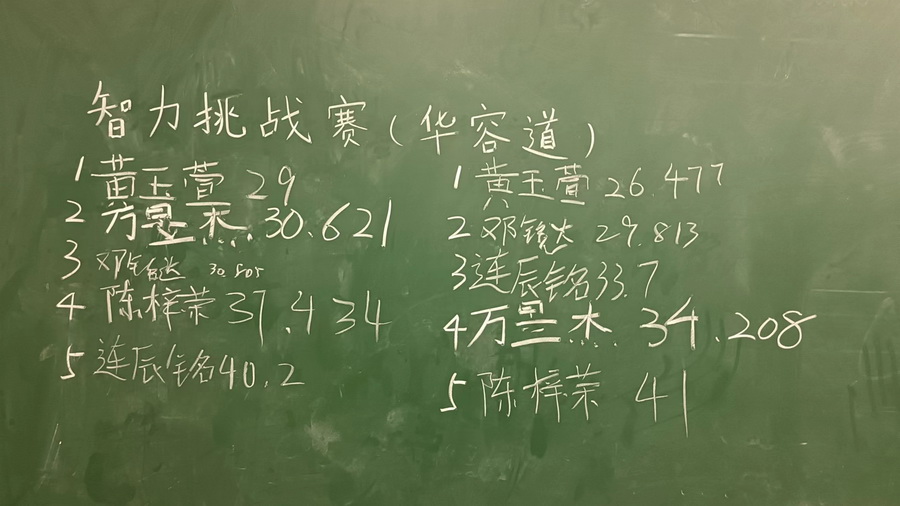 智力挑战赛(华容道)
1 黄玉萱 29
2 万昱杰 30.621
3 邓铭达 30.805
4 陈梓荣 37.434
5 连辰铭 40.2
1 黄玉萱 26.477
2 邓 达 29.813
3 连辰铭 33.7
4 万昱杰 34.208
5 陈梓荣 41